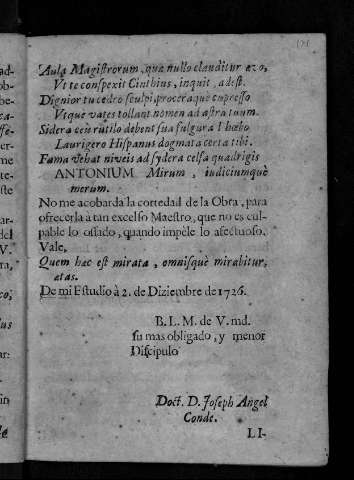 171
Aula Magistrorum, quæ nullo clauditur ævo,
Vt te conspexit Cinthius, inquit, adest.
Dignior tu cedro sculpi, proceraque cupresso
Vt que vates tollant nomen ad astra tuum.
Sidera ceù rutilo debent sua fulgura Phœbo
Laurigero Hispanus dogmata certa tibi.
Fama Vehat niveis ad sydera celsa quadrigis
ANTONIUM Mirum, iudiciumquè
merum.
No me acobarda la cortedad de la Obra, para
ofrecerla à tan excelso Maestro, que no es cul-
pable lo ossado, quando impèle lo afectuoso.
Vale,
Quem hæc est mirata, omnisquè mirabitur,
ætas.
De mi Estudio à 2. de Diziembre de 1726.
B. L. M. de V. md.
su mas obligado, y menor
Discipulo
Doct. D. Joseph Angel
Conde.
LI-